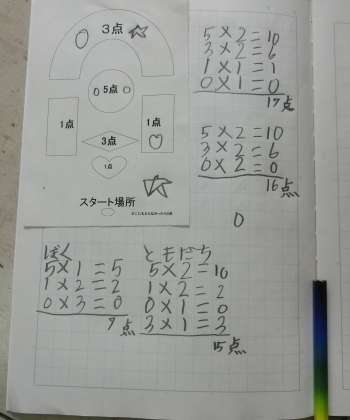 3点
5点
1点
1点
3点
1点
スタート場所
5×2=10
3×2=6
1×1=1
0×1=0
17点
5×2=10
3×2=6
0×2=0
16点
0
ぼく
5×1=5
1×2=2
0×3=0
7点
ともだち
5×2=10
1×2=2
0×1=0
3×1=3
15点